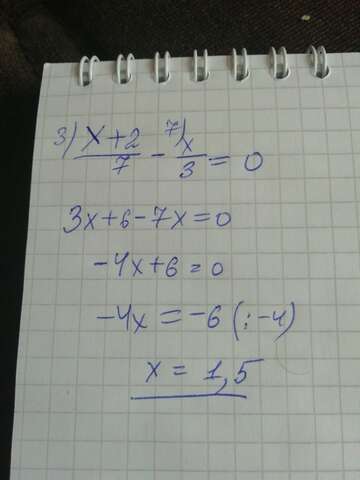 3) x+2/7 - 7) x/3 = 0
3x+6-7x=0
-4x+6=0
-4x=-6 (:-4)
x = 1,5